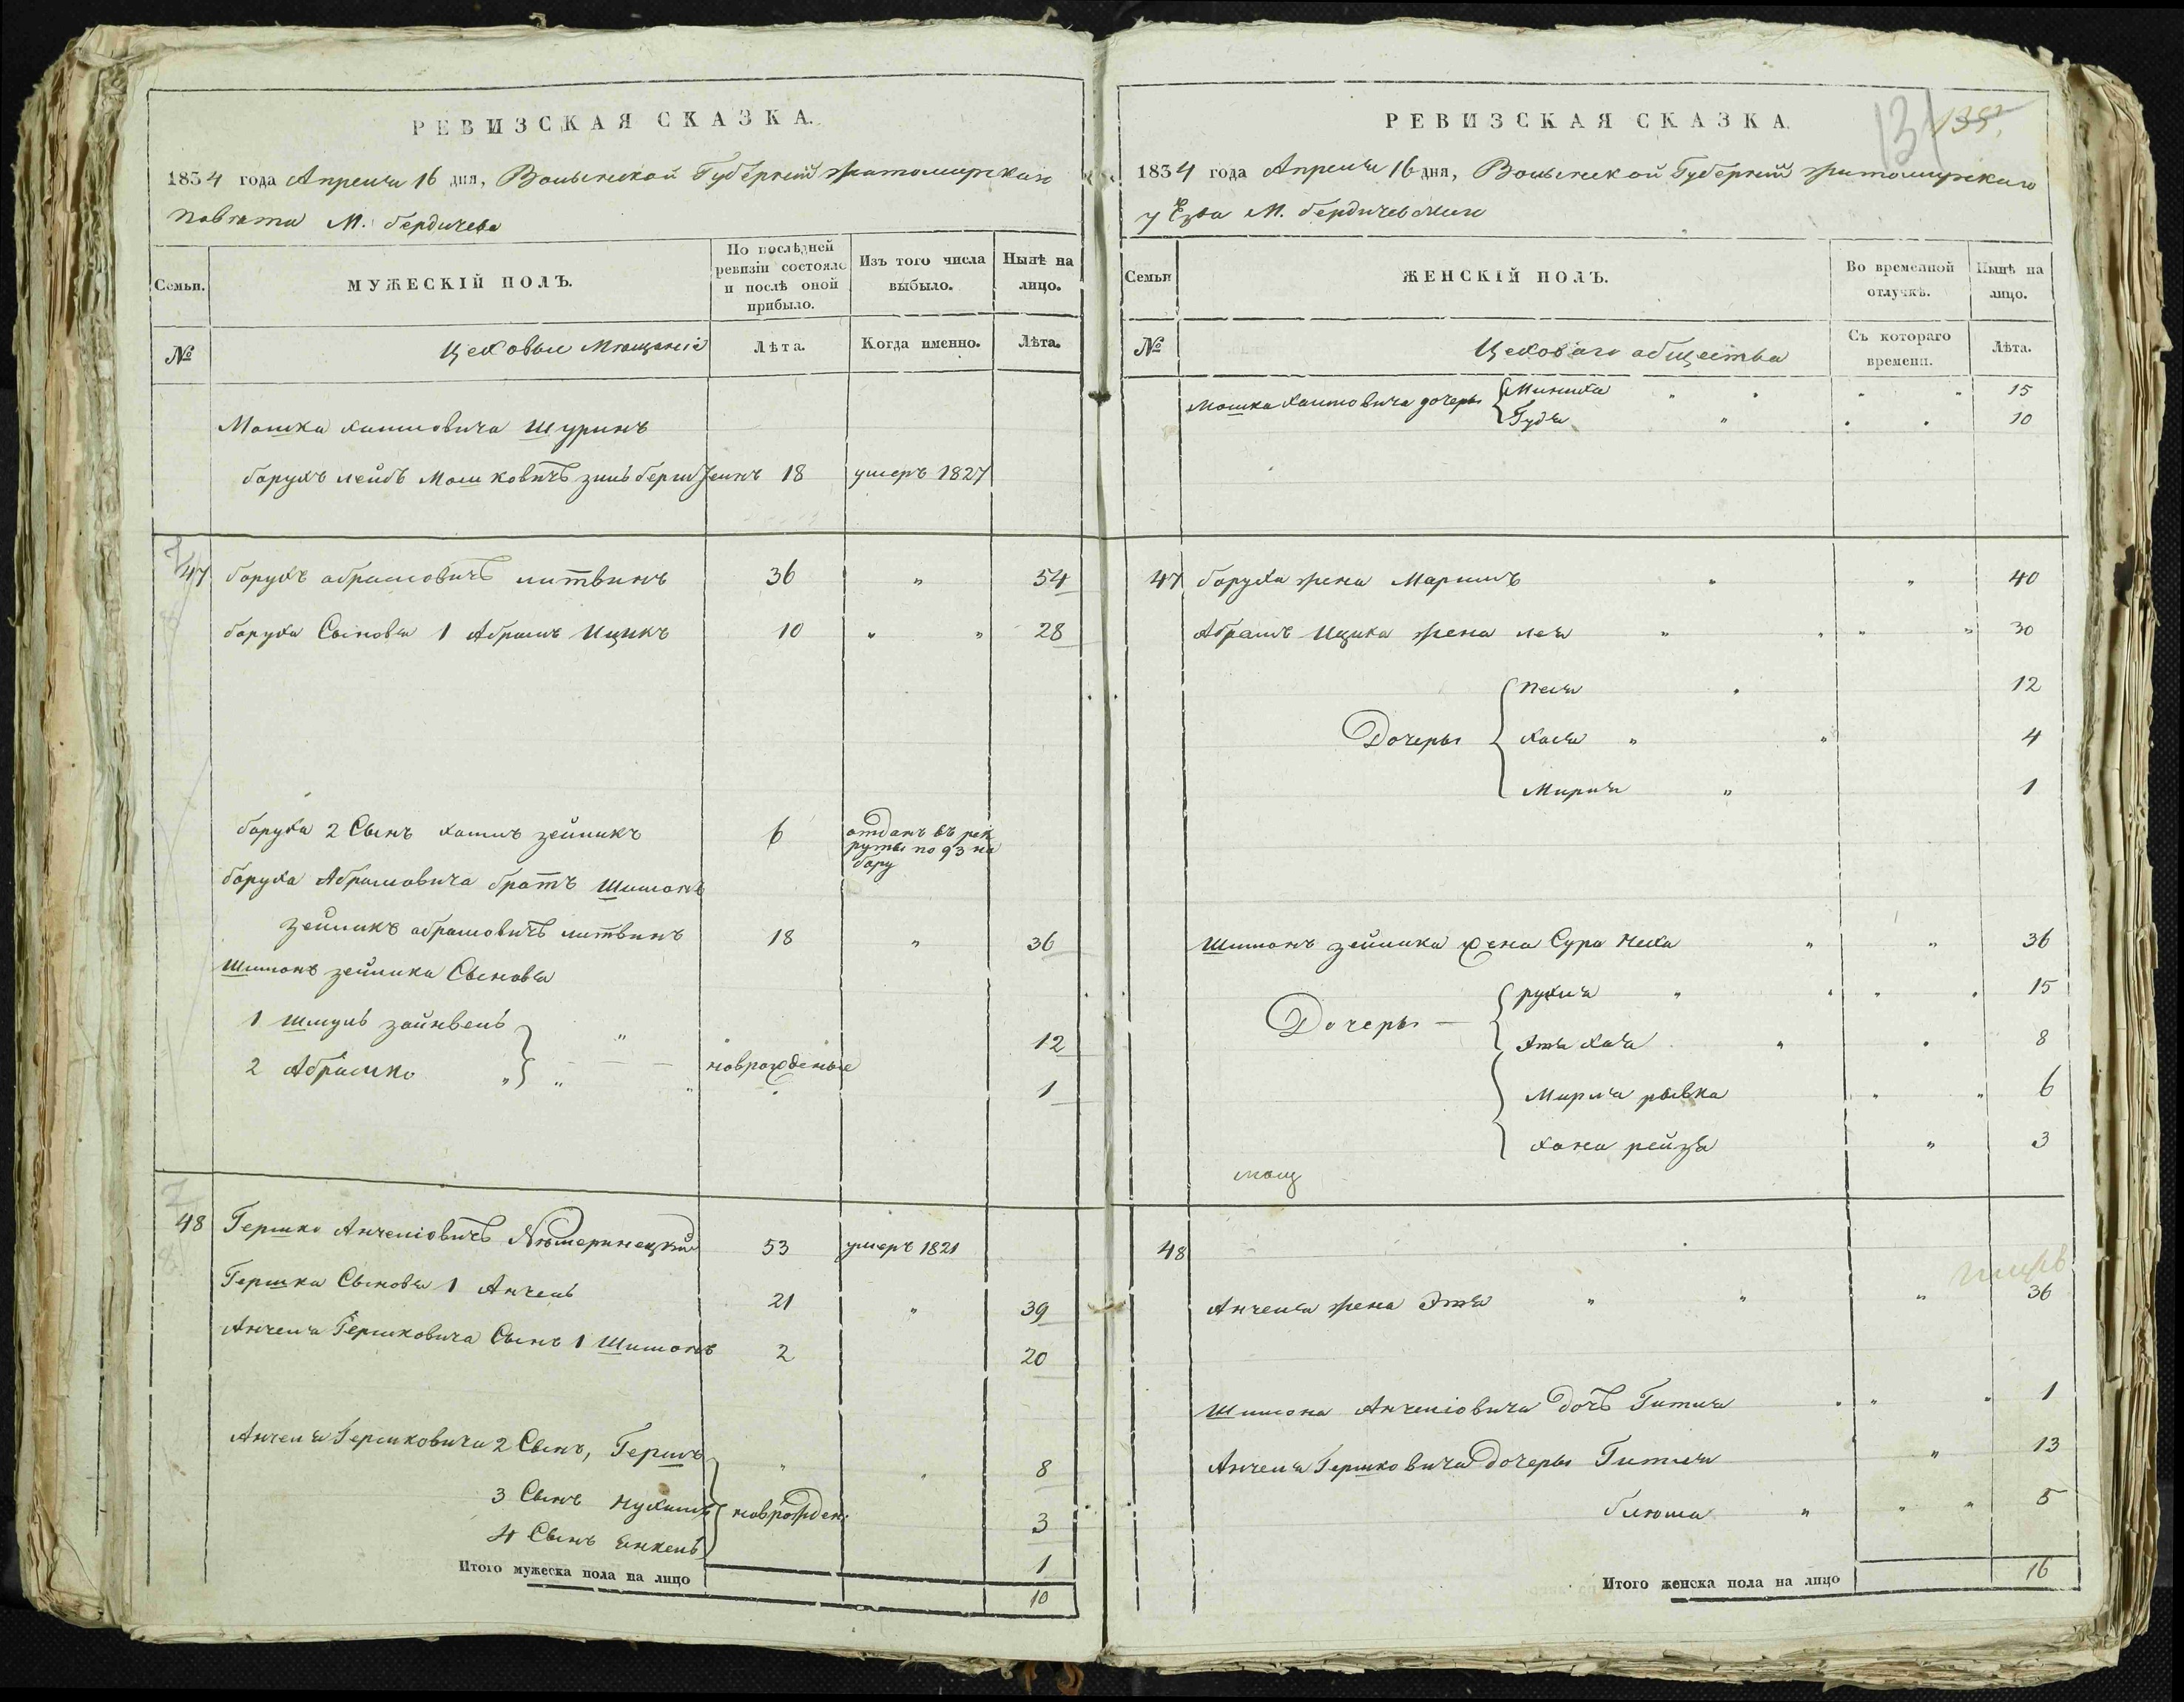 РЕВИЗСКАЯ СКАЗКА.
1834 года Апреля 16 дня, Волынской Губернии Житомирскаго
Повета М. Бердичева
Семьи.
МУЖЕСКІЙ ПОЛЪ.
По послѣдней ревизіи состояло и послѣ оной прибыло.
Изъ того числа выбыло.
Нынѣ на лицо.
№
Цеховые Мещане
Лѣта.
Когда именно.
Лѣта.
Мошка Хаимовича Шуринъ
Борухъ Лейбъ Мошковичъ 18 умеръ 1827
47 Борухъ Абрамовичъ Литвинъ 36 " 54
Боруха Сыновья 1 Абрамъ Ицикъ 10 " " 28
Боруха 2 Сынъ Хаимъ Зейликъ 6 отданъ въ рек
руты по 93 на
бору
Боруха Абрамовича братъ Шимонъ
Зейликъ Абрамовичъ Литвинъ 18 " 36
Шимонъ Зейлика Сыновья
1 Шмуль Зайнвель " 12
2 Абрамко " " новрожденые 1
48 Гершко Анчеліовичъ 53 умеръ 1821
Гершка Сыновья 1 Анчель 21 " 39
Анчеля Гершковича Сынъ 1 Шимонъ 2 20
Анчеля Гершковича 2 Сынъ, Гершъ " " 8
3 Сынъ Нухимъ новрожден: 3
4 Сынъ Янкель 1
Итого мужеска пола на лицо 10
РЕВИЗСКАЯ СКАЗКА.
131 135
1834 года Апреля 16 дня, Волынской Губернии Житомирскаго
уезда М. Бердичева
Семьи
ЖЕНСКІЙ ПОЛЪ.
Во временной отлучкѣ.
Нынѣ на лицо.
№
Цеховаго общества
Съ котораго времени.
Лѣта.
Мошка Хаимовича дочеры Миниха " " " " 15
Гудя " " " 10
47 Боруха жена Маримъ " " 40
Абрамъ Ицика жена Лея " " " " 30
Песя " 12
Дочеры Хася " " 4
Мирля " 1
Шимонъ Зейлика жена Сура Неха " " 36
Дочеры — Рухля " " " " 15
Этя Хая " " 8
Мирля рывка " " 6
Хана рейзя " 3
мещ
48
Анчеля жена Этя " " " 36
Шимона Анчеліовича дочъ Гитля " " " 1
Анчеля Гершковича дочеры Гитля " 13
блюма " " " 5
Итого женска пола на лицо 16